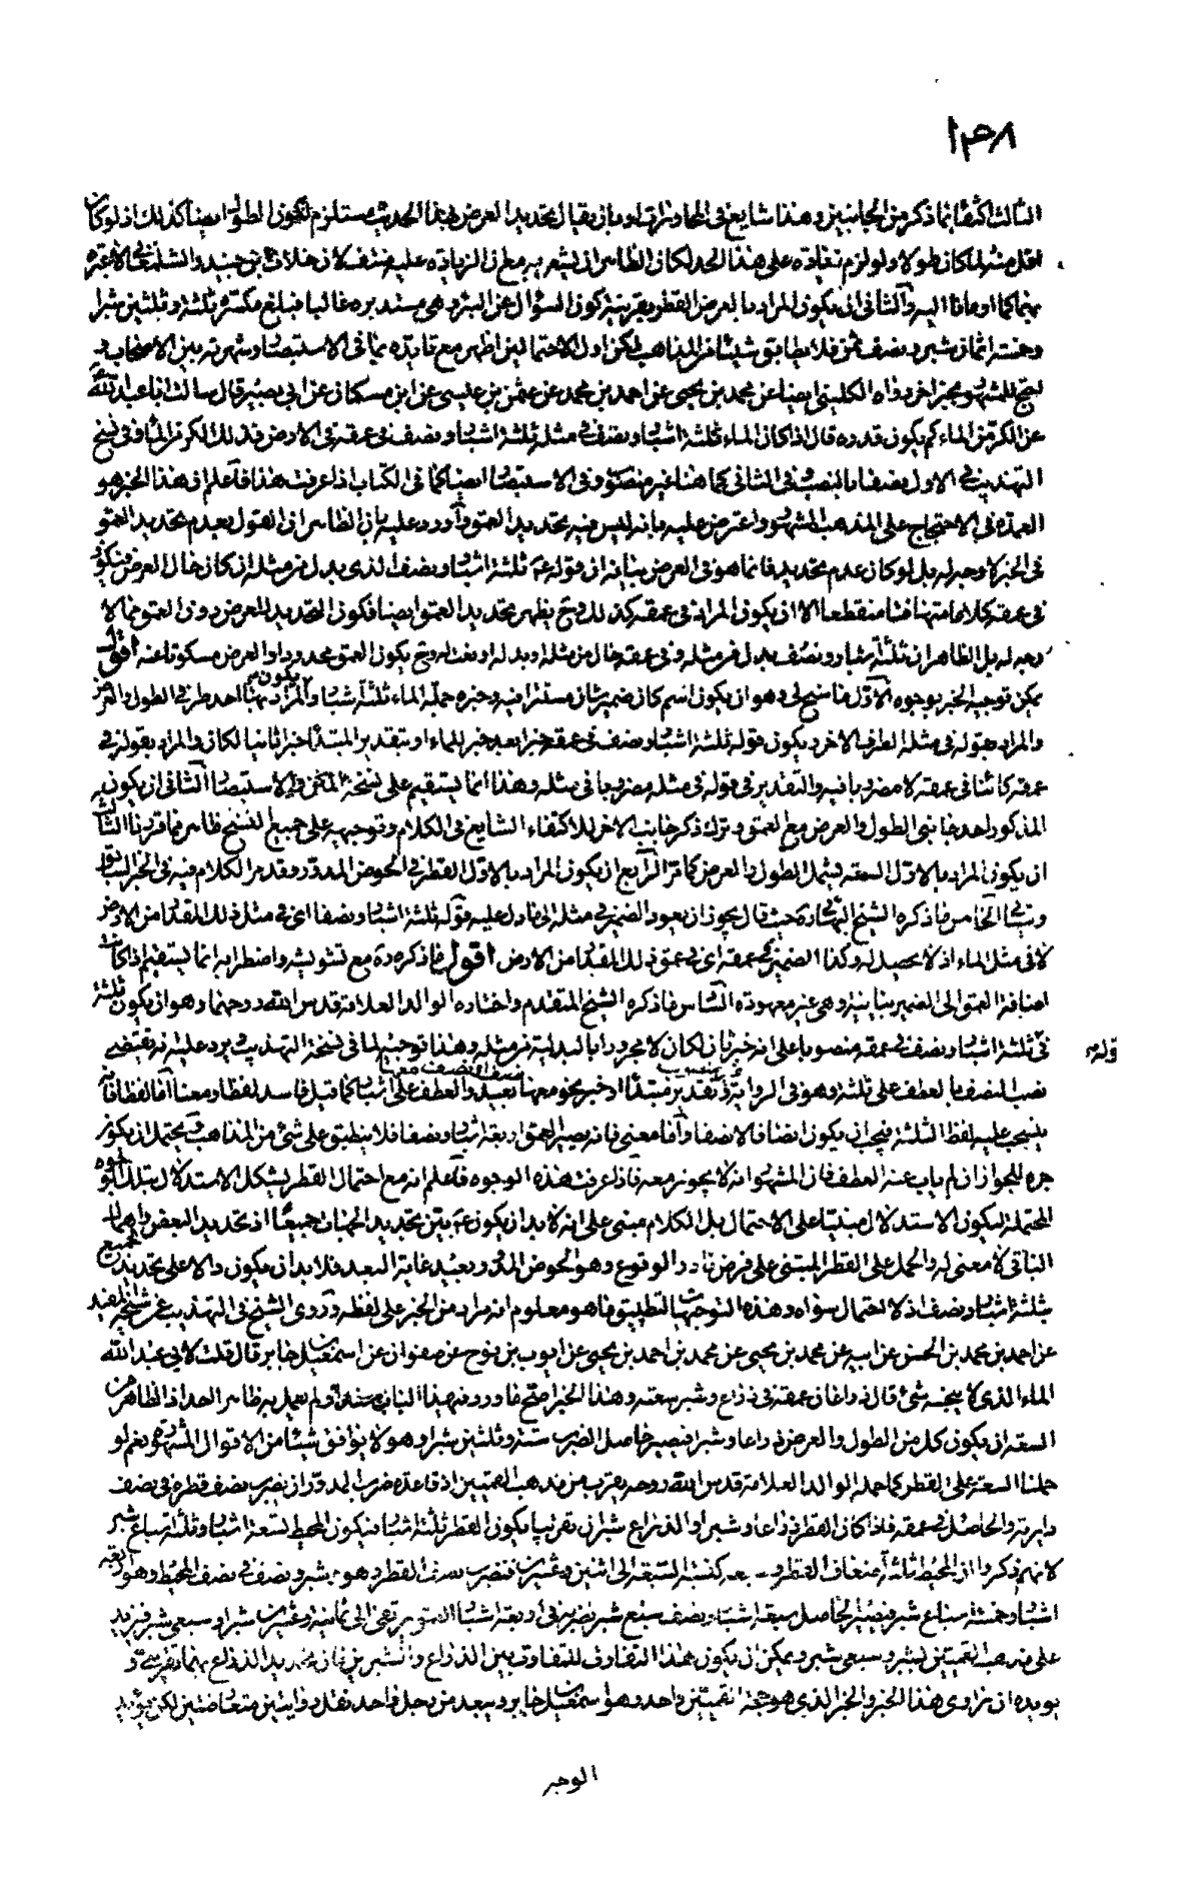 ١٣٨
الثالث اكتفاء بما ذكر من الجانبين وهذا شايع في المحاورات او بان يقال تحديد العرض بهذا الحد مستلزم لكون الطول ايضا كذلك اذ لو كان
اقل منه لما كان طولا ولو لزم زيادة على هذا الحد لكان الظاهر ان يشعر به مع ان الزيادة عليه منتف لان خلاف ابن جنيد والشلمغاني لا عبرة
بهما كما اومانا اليه والثاني ان يكون المراد بالعرض القطر بقرينة كون السؤال عن البئر وهي مستديرة غالبا فيبلغ مكسره ثلثة وثلثين شبرا
وخمسة اثمان شبر ونصف ثمن فلا يطابق شيئا من المذاهب لكن اول الاحتمالين اظهر مع تايده بما في الاستبصار وشهرته بين الاصحاب و
احتج للمشهور بخبر اخر رواه الكليني ايضا عن محمد بن يحيى عن احمد بن محمد عن عثمن بن عيسى عن ابن مسكان عن ابي بصير قال سالت ابا عبد الله
عن الكر من الماء كم يكون قدره قال اذا كان الماء ثلثة اشبار ونصف في مثله ثلثة اشبار ونصف في عمقه في الارض فذلك الكر من الماء وفي نسخ
التهذيب في الاول نصفا بالنصب وفي الثاني كما هنا غير منصوب وفي الاستبصار ايضا كما في الكتاب اذا عرفت هذا فاعلم ان هذا الخبر هو
العمدة في الاحتجاج على المذهب المشهور واعترض عليه بانه ليس فيه تحديد العمق واورد عليه بان الظاهر ان القول بعدم تحديد العمق
في الخبر لا وجه له بل لو كان عدم تحديد فانما هو في العرض بيانه ان قوله ع ثلثة اشبار ونصف الذي بدل من مثله ان كان حال العرض فيكون
في عمقه كلاما متهافتا منقطعا الا ان يكون المراد في عمقه كذلك وح يظهر تحديد العمق ايضا فكون التحديد للعرض دون العمق مما لا
وجه له بل الظاهر ان ثلثة اشبار ونصف بدل من مثله وفي عمقه حال من مثله او بدله او نعت له وح يكون العمق محدودا والعرض مسكوتا عنه اقول
يمكن توجيه الخبر بوجوه الاول ما سنح لي وهو ان يكون اسم كان ضمير شان مستترا فيه وخبره جملة الماء ثلثة اشبار والمراد بها احد طرفي الطول والعرض
والمراد بقوله في مثله الطرف الاخر ويكون قوله ثلثة اشبار ونصف في عمقه خبرا بعد خبر للماء او بتقدير المبتدأ خبرا ثانيا لكان والمراد بقوله في
عمقه كائنا في عمقه لا مضروبا فيه والتقدير في قوله في مثله مضروبا في مثله وهذا انما يستقيم على نسخة المتن والاستبصار الثاني ان يكون
المذكور احد جانبي الطول والعرض مع العمق وترك ذكر جانب الاخر للاكتفاء الشايع في الكلام وتوجيهه على جميع النسخ ظاهر مما قررنا الثالث
ان يكون المراد بالاول السعة فيشمل الطول والعرض كما مر الرابع ان يكون المراد بالاول القطر في الحوض المدور وقد مر الكلام فيه في الخبر السابق
الخامس ما ذكره الشيخ البهائي ره حيث قال يجوز ان يعود الضمير في مثله الى ما دل عليه قوله ثلثة اشبار ونصفا اي في مثل ذلك المقدار من الارض
لا في مثل الماء اذ لا محصل له وكذا الضمير في عمقه اي في عمق ذلك المقدار من الارض اقول ما ذكره ره مع تشويشه واضطرابه انما يستقيم اذا كانت
اضافة العمق الى الضمير بيانية وهي غير معهودة السادس ما ذكره الشيخ المتقدم واختاره الوالد العلامة قدس الله روحهما وهو ان يكون ثلثة
في ثلثة اشبار ونصف في عمقه منصوبا على انه خبر ثان لكان لا مجرورا بالبدلية من مثله وهذا توجيه لما في نسخة التهذيب ويرد عليه انه يقتضي
نصب النصف بالعطف على ثلثة وهو في الرواية تقدير مبتدأ او خبر نحو معها بعيد والعطف على اشبار كما قيل فاسد لفظا ومعنا اما لفظا فانه
ينسحب عليه لفظ الثلثة فيجب ان يكون انصافا لا نصفا واما معنى فانه يصير العمق اربعة اشبار ونصفا فلا ينطبق على شئ من المذاهب ويحتمل ان يكون
جره للجوار ان لم ياب عنه العطف فان المشهور انه لا يجوز معه فاذا عرفت هذه الوجوه فاعلم انه مع احتمال القطر يشكل الاستدلال بتلك الوجوه
المحتملة ليكون الاستدلال مبنيا على الاحتمال بل الكلام مبني على انه لابد ان يكون ع يبين تحديد الجهات جميعا اذ تحديد البعض واهمال
الباقي لا معنى له والحمل على القطر المبتني على فرض نادر الوقوع وهو الحوض المدور بعيد غاية البعد فلا بد ان يكون دالا على تحديد الجميع
بثلثة اشبار ونصف اذ لا احتمال سواه وهذه التوجيهات لتطبيق ما هو معلوم انه مراد من الخبر على لفظه وروى الشيخ في التهذيب عن شيخه المفيد
عن احمد بن محمد بن الحسن عن ابيه عن محمد بن يحيى عن محمد بن احمد بن يحيى عن ايوب بن نوح عن صفوان عن اسمعيل بن جابر قال قلت لابي عبد الله
الماء الذي لا ينجسه شئ قال ذراعان عمقه في ذراع وشبر سعته وهذا الخبر اصح ما ورد في هذا الباب سندا ولم يعمل بظاهره احد اذ الظاهر من
السعة ان يكون كل من الطول والعرض ذراعا وشبرا فيصير حاصل الضرب ستة وثلثين شبرا وهو لا يوافق شيئا من الاقوال المشهورة نعم لو
حملنا السعة على القطر كما حمله الوالد العلامة قدس الله روحه يقرب من مذهب القميين اذ قاعدة ضرب المدور ان يضرب نصف قطره في نصف
دايرته والحاصل في عمقه فاذا كان القطر ذراعا وشبرا والذراع شبران تقريبا يكون القطر ثلثة اشبار فيكون المحيط تسعة اشبار وثلثة اسباع شبر
لانهم ذكروا ان المحيط ثلثة اضعاف القطر وسبعه كنسبة السبعة الى اثنين وعشرين فتضرب نصف القطر وهو شبر ونصف في نصف المحيط وهو اربعة
اشبار وخمسة اسباع شبر فيصير الحاصل سبعة اشبار ونصف سبع شبر نضربه في اربعة اشبار العمق يرتقي الى ثمانية وعشرين شبرا وسبعي شبر فيزيد
على مذهب القميين بشبر وسبعي شبر ويمكن ان يكون هذا التفاوت للتفاوت بين الذراع والشبرين فان تحديد الذراع بهما تقريبي و
يؤيده ان راوي هذا الخبر والخبر الذي هو حجة القميين واحد وهو اسمعيل بن جابر ويبعد من رجل واحد نقل روايتين متعارضتين لكن يؤيد
الوجه
قوله